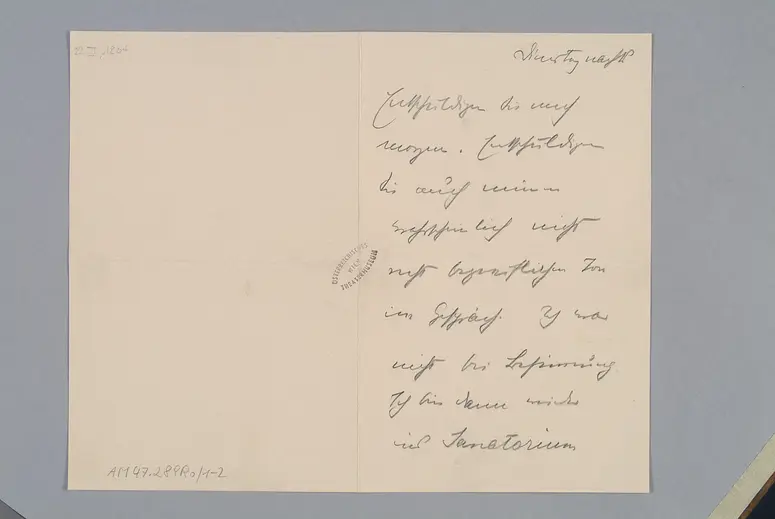 Dienstag nachts
Entschuldigen Sie mich
morgen. Entschuldigen
Sie auch meinen
wahrscheinlich nicht
recht begreiflichen Ton
im Gespräch. Ich war
nicht bei Besinnung.
Ich bin dann wieder
ins Sanatorium
ÖSTERREICHISCHES
WIEN
THEATERMUSEUM
AM 47.289Ro/1-2